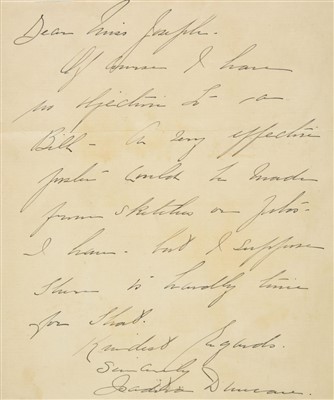 Dear Miss Joseph.
Of course I have
no objection to a
Bill - A very effective
poster could be made
from sketches or fotos -
I have. but I suppose
there is hardly time
for that.
Kindest Regards.
Sincerely
Isadora Duncan.